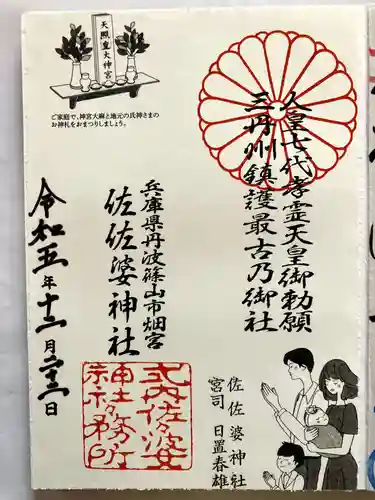 天照皇大神宮
ご家庭で、神宮大麻と地元の氏神さまの
お神札をおまつりしましょう。
人皇七代孝霊天皇御勅願
三丹州鎮護最古乃御社
兵庫県丹波篠山市畑宮
佐佐婆神社
令和五年十二月二十三日
式内佐々婆
神社
佐佐婆神社
宮司 日置春雄